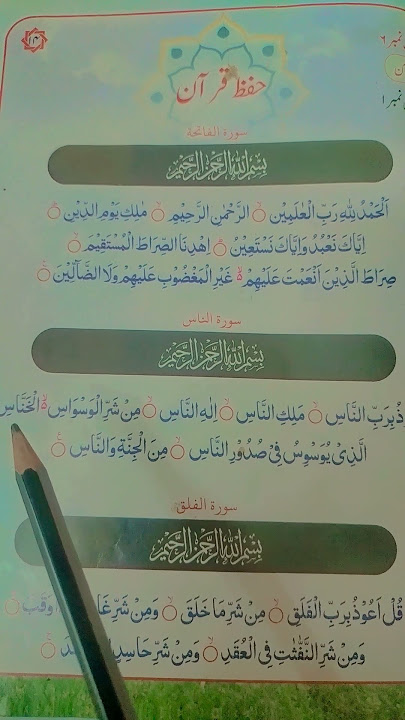 ۱۴
نمبر ۶
حفظ قرآن
نمبر ۱
سورة الفاتحة
بِسْمِ اللّٰهِ الرَّحْمٰنِ الرَّحِيْمِ
اَلْحَمْدُ لِلّٰهِ رَبِّ الْعٰلَمِيْنَ ۙ الرَّحْمٰنِ الرَّحِيْمِ ۙ مٰلِكِ يَوْمِ الدِّيْنِ ۙ
اِيَّاكَ نَعْبُدُ وَاِيَّاكَ نَسْتَعِيْنُ ۙ اِهْدِنَا الصِّرَاطَ الْمُسْتَقِيْمَ ۙ
صِرَاطَ الَّذِيْنَ اَنْعَمْتَ عَلَيْهِمْ ۙ غَيْرِ الْمَغْضُوْبِ عَلَيْهِمْ وَلَا الضَّآلِّيْنَ
سورة الناس
بِسْمِ اللّٰهِ الرَّحْمٰنِ الرَّحِيْمِ
بِرَبِّ النَّاسِ ۙ مَلِكِ النَّاسِ ۙ اِلٰهِ النَّاسِ ۙ مِنْ شَرِّ الْوَسْوَاسِ ۙ الْخَنَّاسِ
الَّذِيْ يُوَسْوِسُ فِيْ صُدُوْرِ النَّاسِ ۙ مِنَ الْجِنَّةِ وَالنَّاسِ
سورة الفلق
بِسْمِ اللّٰهِ الرَّحْمٰنِ الرَّحِيْمِ
قُلْ اَعُوْذُ بِرَبِّ الْفَلَقِ ۙ مِنْ شَرِّ مَا خَلَقَ ۙ وَمِنْ شَرِّ وَقَبَ ۙ
وَمِنْ شَرِّ النَّفّٰثٰتِ فِي الْعُقَدِ ۙ وَمِنْ شَرِّ حَاسِدٍ